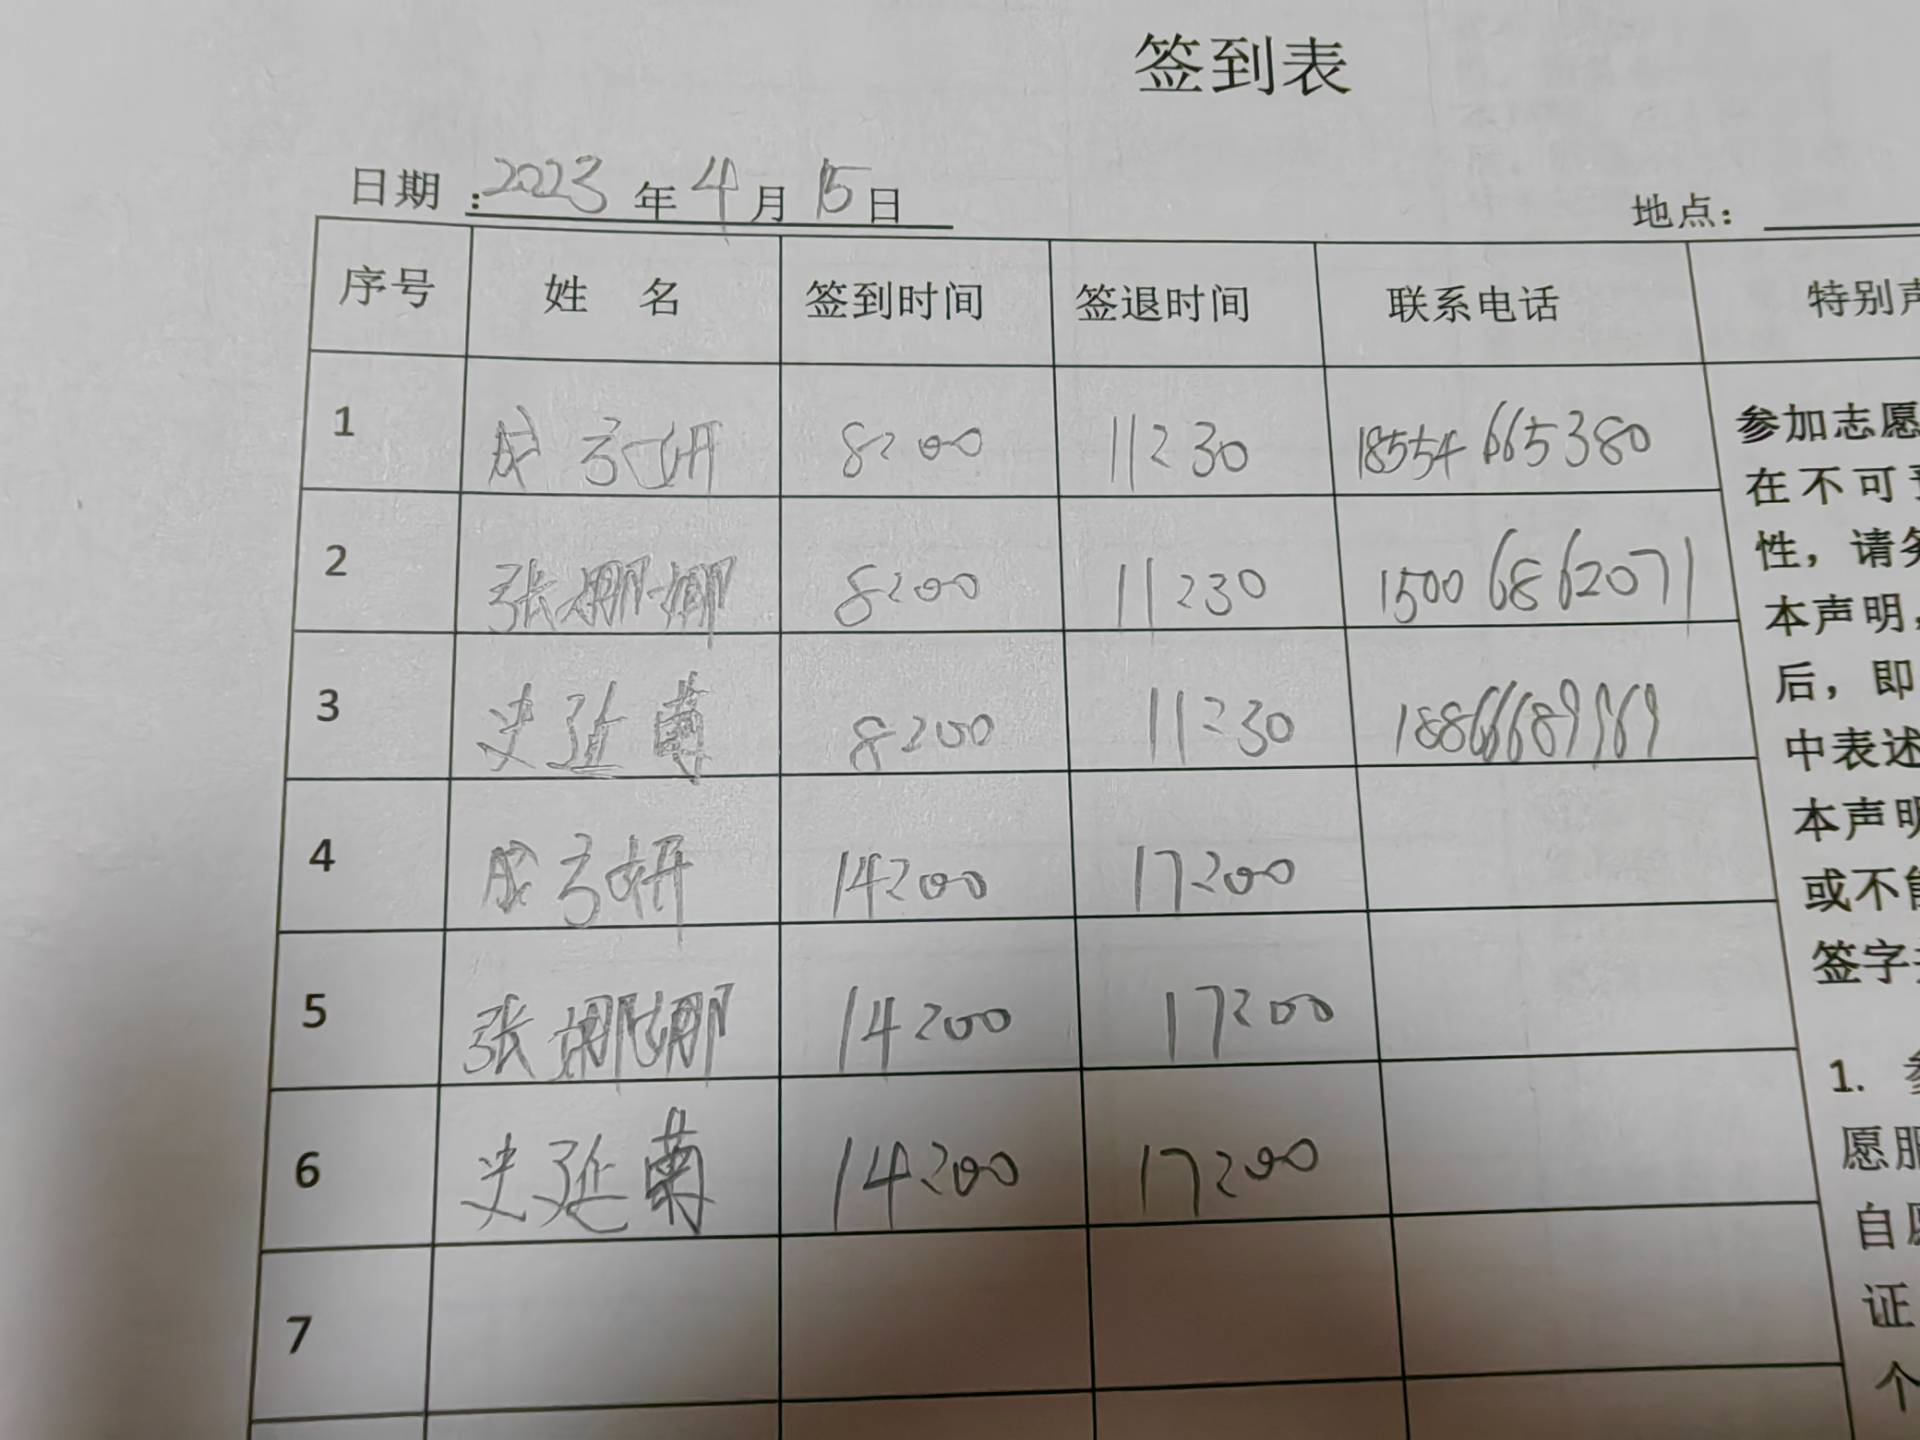 签到表
日期：2023年4月15日 地点：
序号 姓 名 签到时间 签退时间 联系电话 特别声
1 成方妍 8:00 11:30 18554665380
2 张娜娜 8:00 11:30 15006862071
3 史延菊 8:00 11:30 18866689969
4 成方妍 14:00 17:00
5 张娜娜 14:00 17:00
6 史延菊 14:00 17:00
7
参加志愿
在不可予
性，请务
本声明，
后，即
中表述
本声明
或不能
签字
1. 参
愿服
自愿
证
个